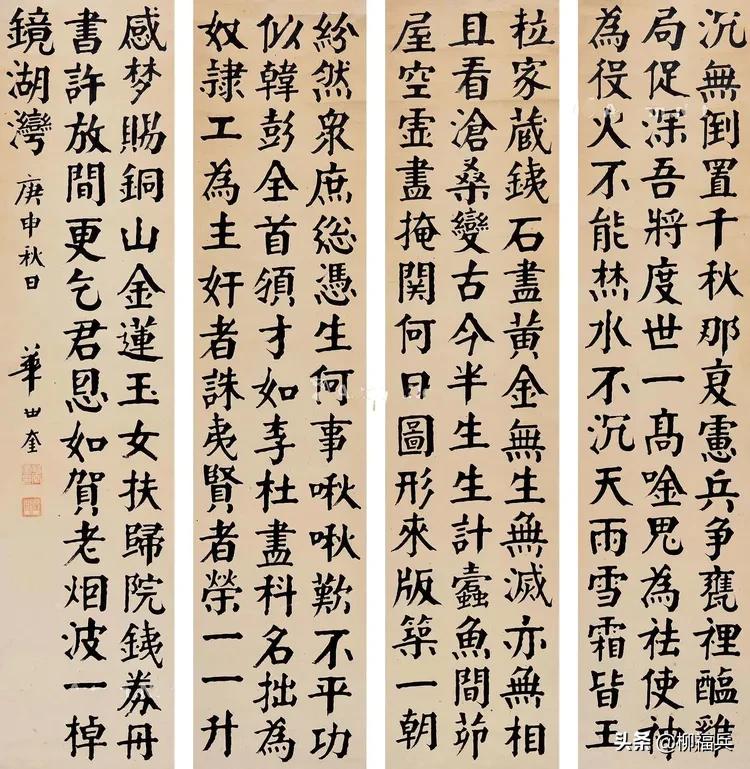 沉無倒置千秋那复慮兵争甕裡醯雞
局促深吾將度世一高唫鬼為祛使神
為役火不能焚水不沉天雨雪霜皆玉
粒家藏銕石盡黄金無生無滅亦無相
且看滄桑變古今半生生計蠹魚間茆
屋空虚盡掩関何日圖形來版築一朝
紛然衆庶総憑生何事啾啾歎不平功
似韓彭全首領才如李杜盡科名拙為
奴隷工為主奸者誅夷賢者榮一一升
感梦賜銅山金蓮玉女扶歸院銕券丹
書許放間更乞君恩如賀老烟波一棹
鏡湖灣 庚申秋日 華世奎
头条 @柳福兵